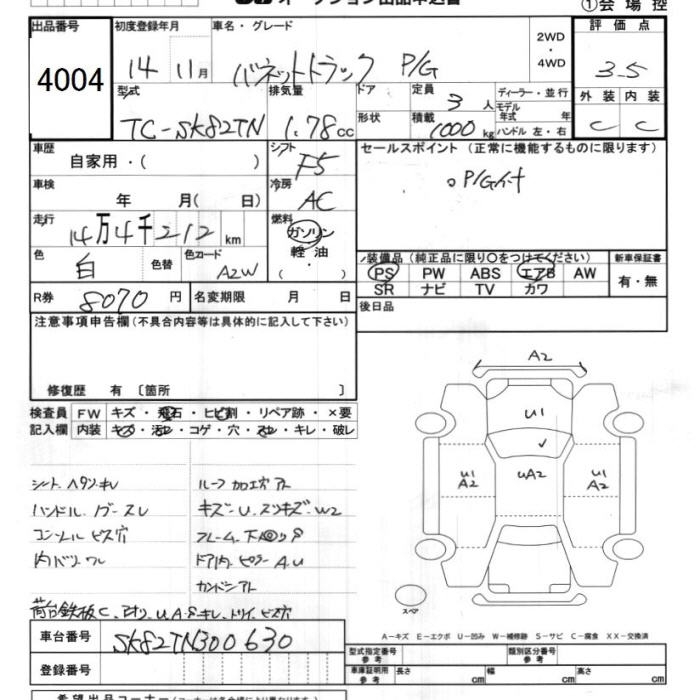 ①会場控
出品番号 初度登録年月 車名・グレード 2WD・4WD 評価点
4004 14 11月 バネットトラック P/G 3.5
型式 排気量 ドア 定員 ディーラー・並行 外装 内装
TC-SK82TN 1.78cc 3人 モデル年式 年 C C
形状 積載 1000kg ハンドル 左・右
車歴 シフト セールスポイント (正常に機能するものに限ります)
自家用・( ) F5
○P/G付
車検 冷房
年 月( 日) AC
走行 燃料
14万4千212km ガソリン
軽油
色 色替 色コード ・( )
白 A2W
装備品 (純正品に限り○をつけてください) 新車保証書
PS PW ABS エアB AW 有・無
SR ナビ TV カワ
R券 8070円 名変期限 月 日 後日品
注意事項申告欄(不具合内容等は具体的に記入して下さい)
修復歴 有 〔箇所 〕
検査員 FW キズ・飛石・ヒビ割・リペア跡・×要
記入欄 内装 キズ・汚レ・コゲ・穴・スレ・キレ・破レ
シート ヘタリ・キレ ルーフ 加工穴アト
ハンドル・ノブ・スレ キズ・U・スリキズ・W2
コンソール ビス穴 フレーム・下回リS
内バリ ワレ ドア内・ピラーA.U
カンバンアト
荷台鉄板C、アオリ、U.A.S・キレ、トリイ、ビス穴
A2
U1
✓
U1
A2
UA2
U1
A2
スペア
A-キズ E-エクボ U-凹み W-補修跡 S-サビ C-腐食 XX-交換済
車台番号 SK82TN300630
型式指定番号 参考 類別区分番号 参考
登録番号
車庫証明用 参考 長さ cm 幅 cm 高さ cm